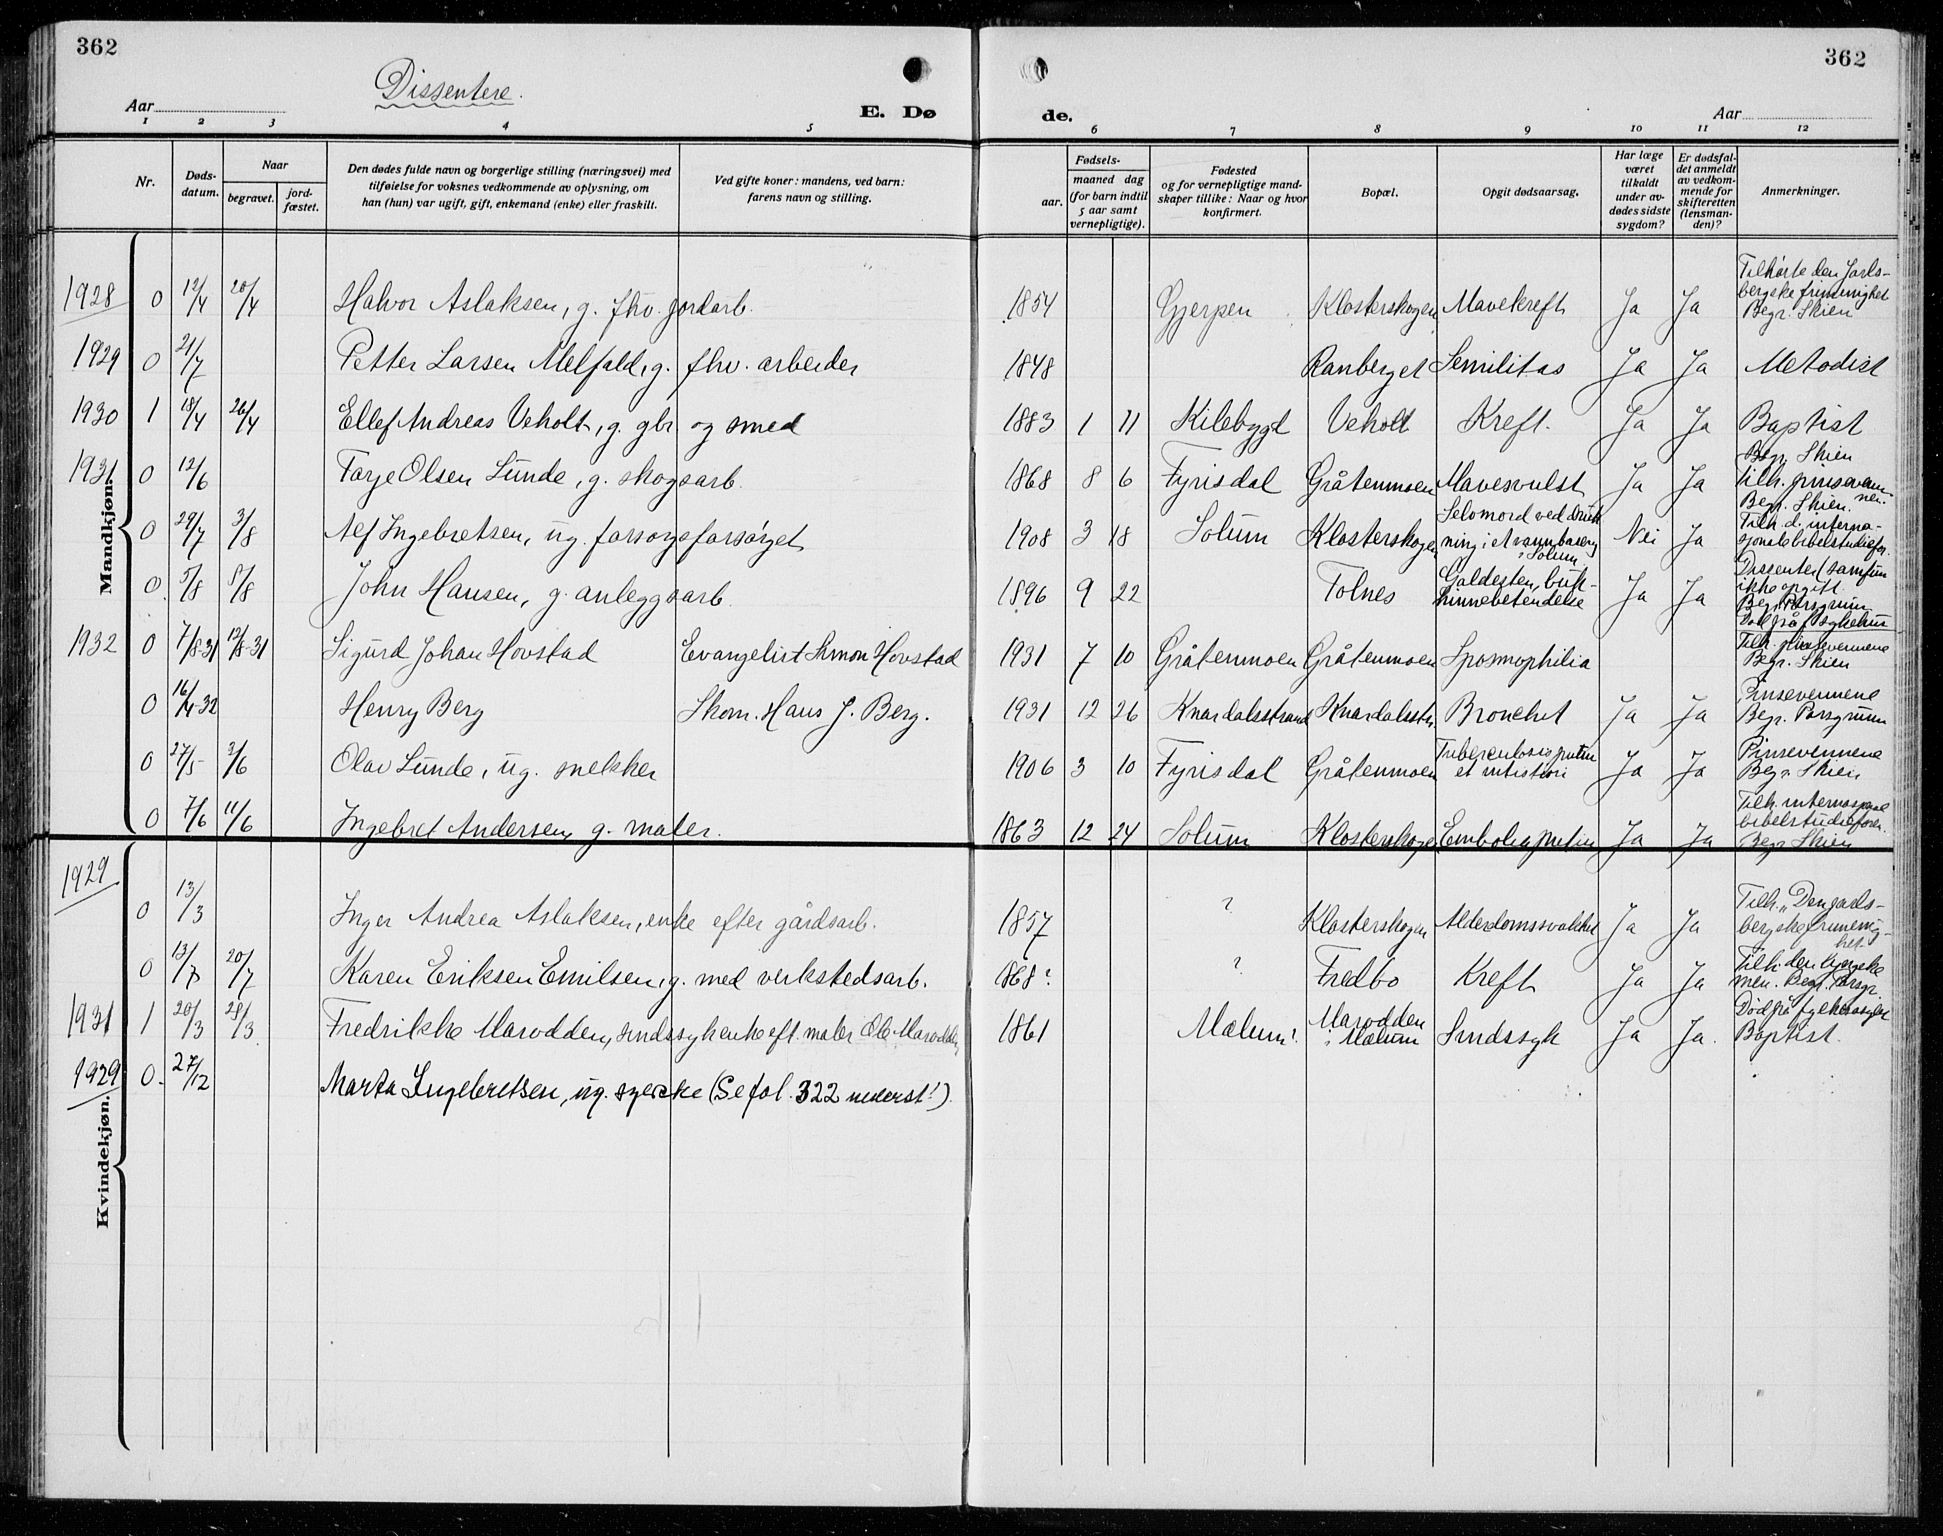 362
362
Dissentere.
Aar
E. Dø
de.
Aar
1 2 3 4 5 6 7 8 9 10 11 12
Nr.
Døds-
datum.
Naar
begravet.
jord-
fæstet.
Den dødes fulde navn og borgerlige stilling (næringsvei) med
tilføielse for voksnes vedkommende av oplysning, om
han (hun) var ugift, gift, enkemand (enke) eller fraskilt.
Ved gifte koner: mandens, ved barn:
farens navn og stilling.
aar.
Fødsels-
maaned dag
(for barn indtil
5 aar samt
vernepligtige).
Fødested
og for vernepligtige mand-
skaper tillike: Naar og hvor
konfirmert.
Bopæl.
Opgit dødsaarsag.
Har læge
været
tilkaldt
under av-
dødes sidste
sygdom?
Er dødsfal-
det anmeldt
av vedkom-
mende for
skifteretten
(lensman-
den)?
Anmerkninger.
Mandkjøn.
1928 0 12/4 20/4 Halvor Aslaksen, g. fhv. jordarb. 1854 Gjerpen Klosterskogen Mavekreft Ja Ja
Tilhørte den Jarls-
bergske frimenighet
Begr. Skien
1929 0 21/7 Petter Larsen Melfald, g. fhv. arbeider 1848 Ranberget Semilitas Ja Ja Metodist
1930 1 18/4 26/4 Ellef Andreas Veholt, g. gbr og smed 1883 1 11 Kilebygd Veholt Kreft. Ja Ja Baptist
1931 0 12/6 Tarje Olsen Lunde, g. skogsarb. 1868 8 6 Fyrisdal Gråtenmoen Mavesvulst Ja Ja
Begr. Skien
Tilh. pinseven-
nen.
0 29/7 3/8 Alf Ingebretsen, ug. forsorgsforsørget 1908 3 18 Solum Klosterskogen
Selvmord ved druk-
ning i
i Solum
Nei Ja
Begr. Skien.
Tilh. d. interna-
sjonale bibelstudiefor.
0 5/8 8/8 John Hansen, g. anleggsarb. 1896 9 22 Tolnes
Galdesten, buk-
hinnebetendelse
Ja Ja
Dissenter (samfun
ikke opgitt
Begr. Porsgrunn
Død på sykehus
1932 0 7/8-31 12/8-31 Sigurd Johan Hovstad Evangelist Simon Hovstad 1931 7 10 Gråtenmoen Gråtenmoen Spasmophilia
Tilh. pinsevennene
Begr. Skien
0 16/4-32 Henry Berg Skom. Hans J. Berg. 1931 12 26 Knardalsstrand Knardalsstr. Bronchit Ja Ja
Pinsevennene
Begr. Porsgrunn
0 27/5 3/6 Olav Lunde, ug. snekker 1906 3 10 Fyrisdal Gråtenmoen
Tuberculosis pulm
et intistini
Ja Ja
Pinsevennene
Begr. Skien
0 7/6 11/6 Ingebret Andersen, g. maler. 1863 12 24 Solum Klosterskogen Embolia pulm Ja Ja
Tilh. internasjonal
bibelstudieforen.
Begr. Skien
Kvindekjøn.
1929 0 13/3 Inger Andrea Aslaksen, enke efter gårdsarb. ? 1857 Klosterskogen Alderdomssvakhet Ja Ja
Tilh. "Den jarls-
bergske frimenig-
het
0 13/7 20/7 Karen Eriksen Emilsen, g. med verkstedsarb. 1868? ? Fredbo Kreft Ja Ja
Tilh. den lyngske
men. Begr. Porsgr
1931 1 20/3 28/3 Fredrikke Marodden, sindssyk enke eft. maler Ole Marodden 1861 Mælum?
Marodden
i Mælum
Sindssyk Ja Ja.
Død på
Baptist.
1929 0. 27/12 Marta Ingebretsen, ug. syerske (Se fol. 322 nederst!)